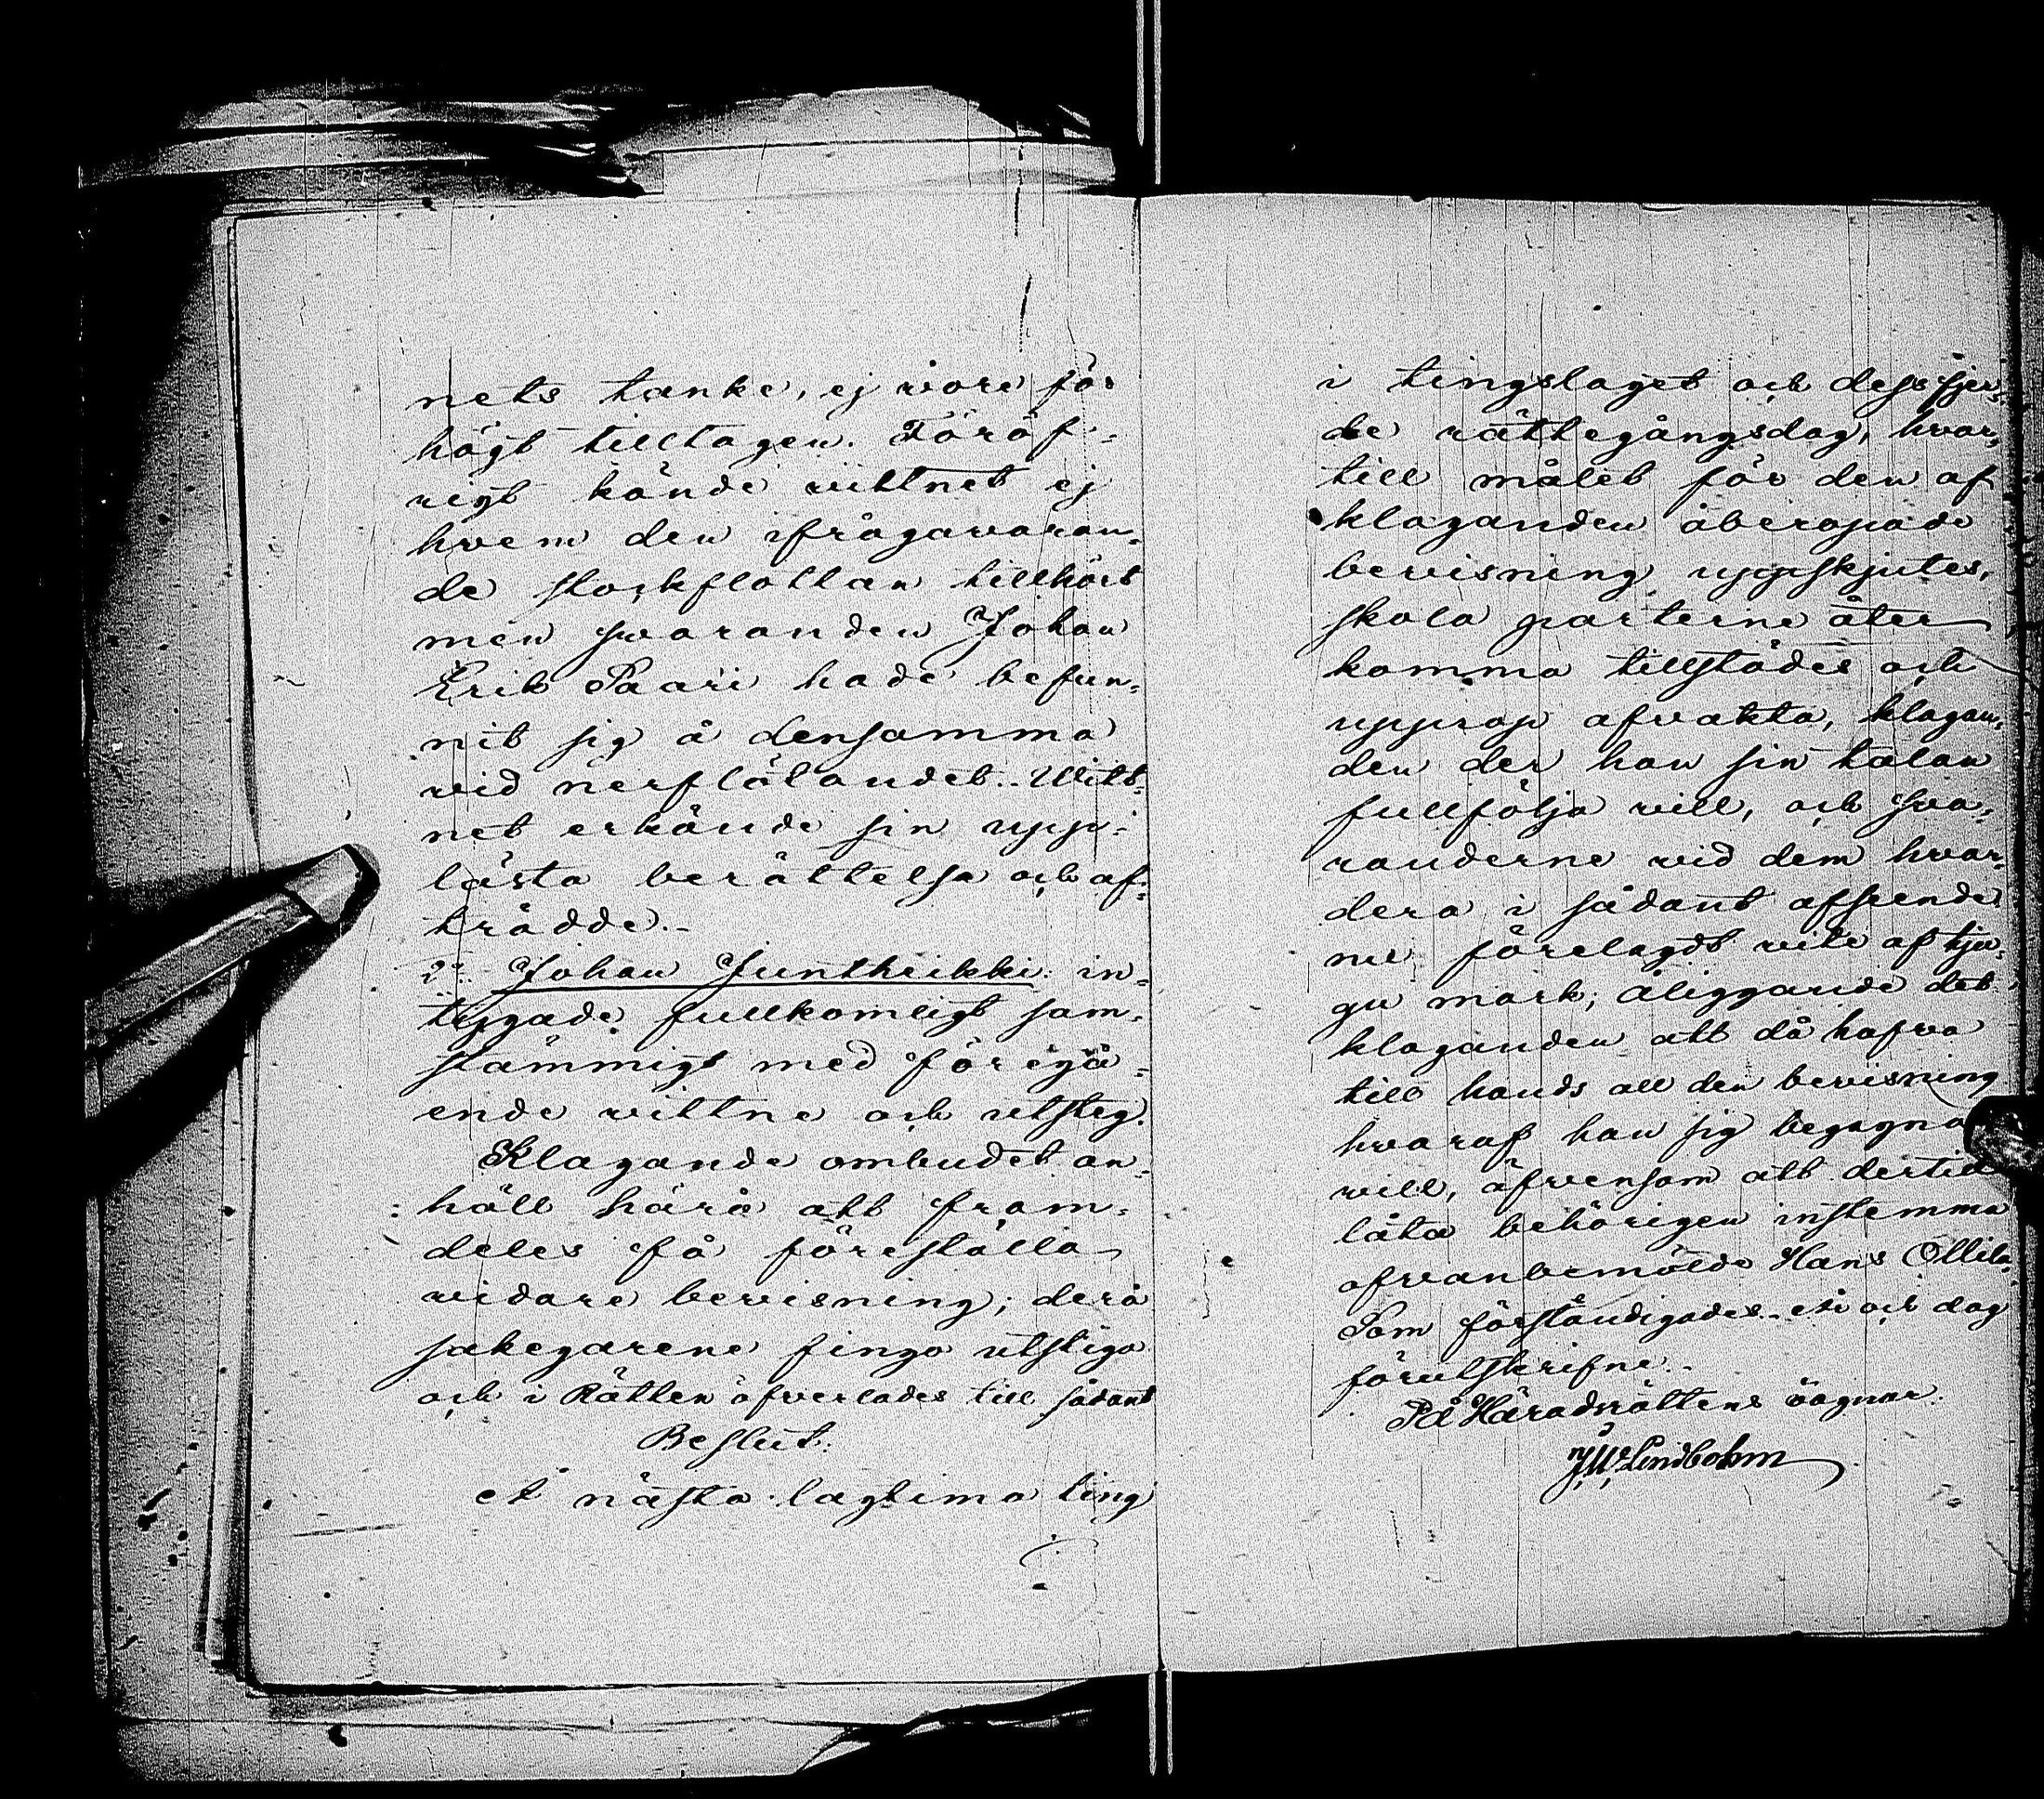 nets tanke, ej vore för
högt tilltagen. Föröf-
rigt kände vittnet ej
hvem den ifrågavaran-
de stockflottan tillhört
men svaranden Johan
Erik Paari hade befun-
nit sig å densamma
vid nerflötandet. Witt-
net erkände sin upp-
lästa berättelse och af-
trädde.-
2:o Johan Juntheikki in-
tygade fullkomligt sam-
stämmigt med föregå-
ende vittne och utsteg.
Klagande ombudet an-
höll härå att fram-
deles få föreställa
vidare bevisning; derå
sakegarene fingo utstiga
och i Rätten öfverlades till sådant
Beslut.
Å nästa lagtima ting
i tingslaget och dess fjer-
de rättegångsdag, hvar-
till målet för den af
klaganden åberopade
bevisning uppskjutes,
skola parterne åter
komma tillstädes och
upprop afvakta, klagan-
den der han sin talan
fullfölja vill, och sva-
randerne vid dem hvar-
dera i sådant afseende
nu förelagdt vite af tju-
gu mark; åliggande det
klaganden att då hafva
till hands all den bevisning
hvaraf han sig begagna
vill, äfvensom att dertill
låta behörigen instemma
ofvanbemälde Hans Ollila.
Som förständigades. År och dag
förutskrifne.-
På Häradsrättens vägnar:
J. W. Lindbohm